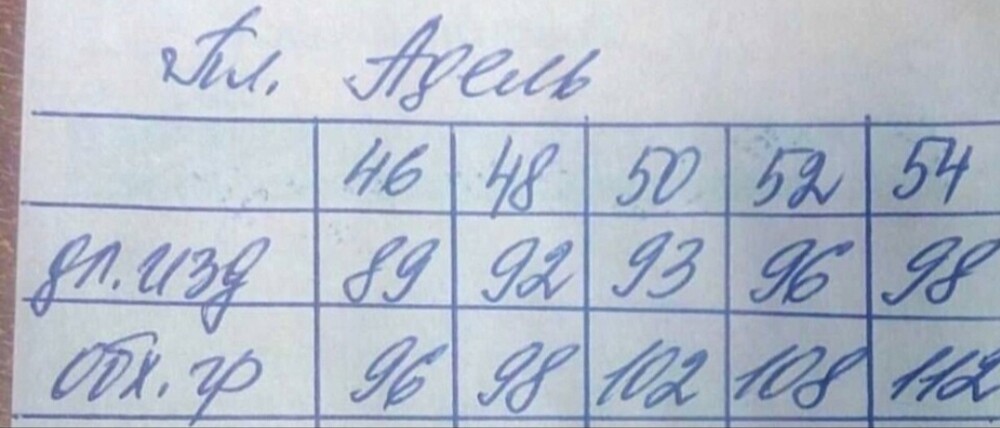 Пл. Адель
46 48 50 52 54
дл.изд 89 92 93 96 98
обх.гр 96 98 102 108 112